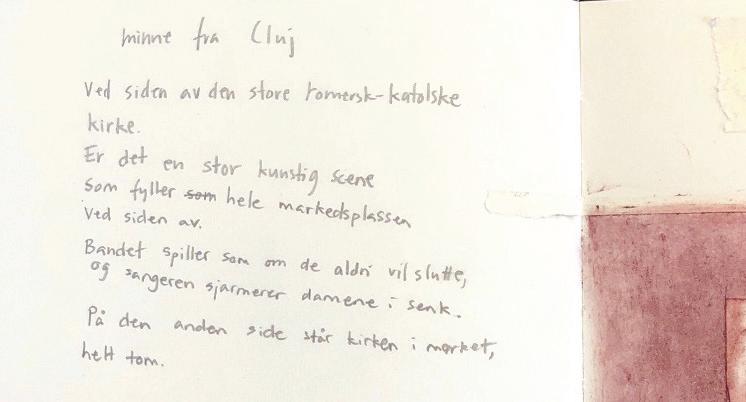 minne fra Cluj
Ved siden av den store romersk-katolske
kirke.
Er det en stor kunstig scene
som fyller som hele markedsplassen
Ved siden av.
Bandet spiller som om de aldri vil slutte,
og sangeren sjarmerer damene i senk.
På den anden side står kirken i mørket,
helt tom.